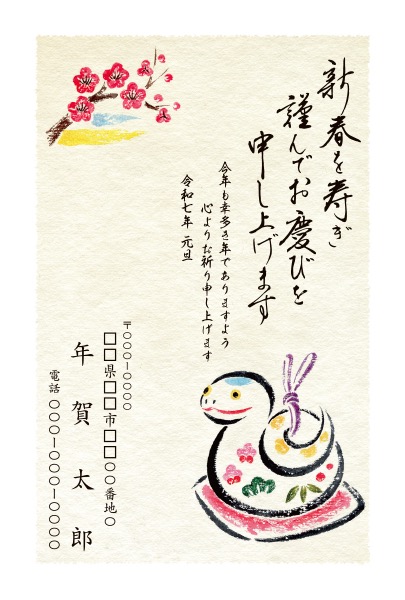 新春を寿ぎ
謹んでお慶びを
申し上げます
今年も幸多き年でありますよう
心よりお祈り申し上げます
令和七年 元旦
〒○○○-○○○○
□□県□□市□□○○番地○
年賀太郎
電話 ○○○-○○○-○○○○